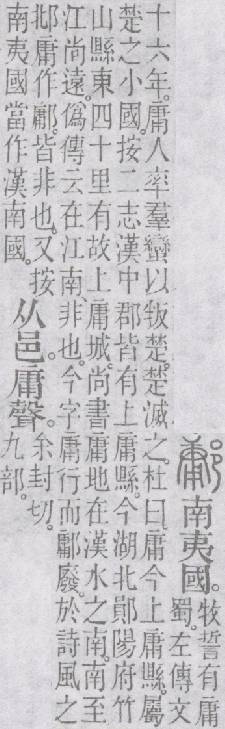 鄘南夷國。
牧誓有庸
蜀。左傳文
十六年。庸人率羣蠻以叛楚。楚滅之。杜曰。庸今上庸縣。屬
楚之小國。按二志漢中郡皆有上庸縣。今湖北鄖陽府竹
山縣東四十里有故上庸城。尚書庸地在漢水之南。南至
江尚遠。僞傳云在江南。非也。今字庸行而鄘廢。於詩風之
邶庸作鄘。皆非也。又按
南夷國當作漢南國。
从邑。庸聲。
余封切。
九部。